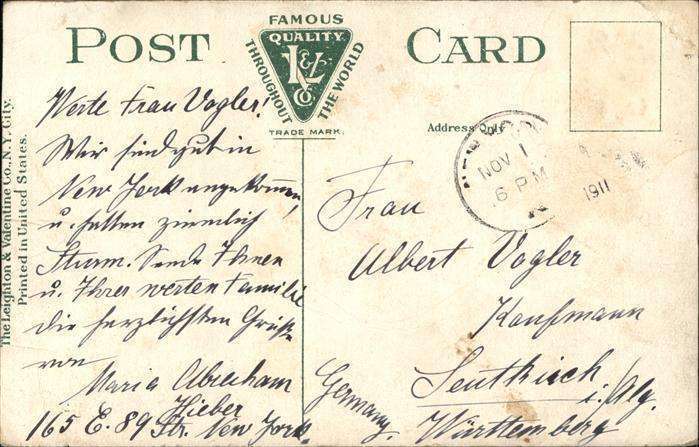 POST CARD
FAMOUS
QUALITY
L&V
Co.
THROUGHOUT THE WORLD
TRADE MARK.
Address Only
NOV 1
6 PM
1911
The Leighton & Valentine Co., N.Y. City.
Printed in United States.
Werte Frau Vogler!
Wir sind gut in
New York angekommen,
u. hatten ziemlich
Sturm. Sende Ihnen
u. Ihrer werten Familie
die herzlichsten Grüße
von
Maria Abraham
Hieber
165 E. 89 Str. New York.
Frau
Albert Vogler
Kaufmann
Leutkirch i. Alg.
Württemberg
Germany.